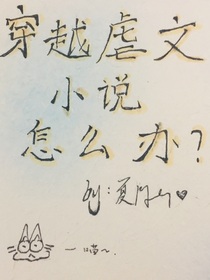 穿越虐文
小说
怎么办?
夏
一喵~.